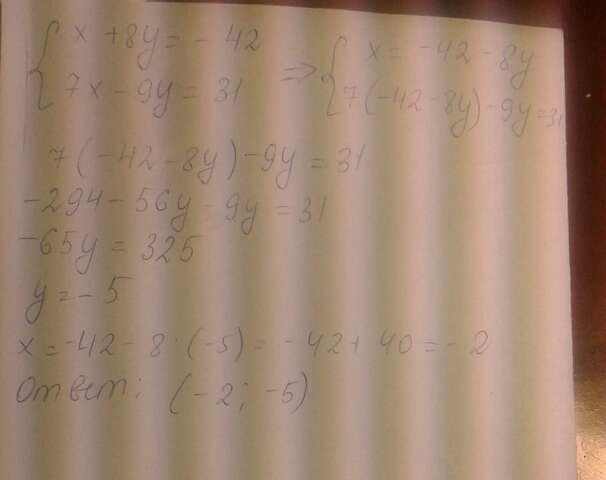 { x + 8y = - 42
7x - 9y = 31 => { x = -42 - 8y
7(-42 - 8y) - 9y = 31
7(-42 - 8y) - 9y = 31
-294 - 56y - 9y = 31
-65y = 325
y = - 5
x = -42 - 8·(-5) = -42 + 40 = - 2
Ответ: (-2; -5)